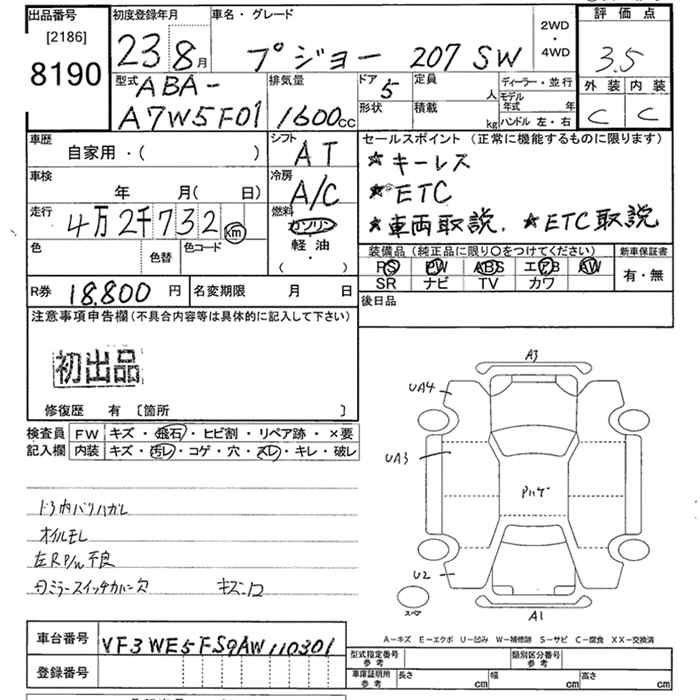 出品番号
[2186]
8190
初度登録年月
23 8月
車名・グレード
プジョー 207 SW
2WD
・
4WD
評価点
3.5
外装 内装
C C
型式
ABA-
A7W5F01
排気量
1600cc
ドア
5
定員
人
形状
積載
kg
ディーラー・並行
モデル
年式 年
ハンドル 左・右
車歴
自家用・( )
シフト
AT
車検
年 月( 日)
冷房
A/C
走行
4万2千732 km
燃料
ガソリン
軽油
( ・ )
色
色替
色コード
セールスポイント (正常に機能するものに限ります)
★キーレス
★ETC
★車両取説. ★ETC取説
装備品(純正品に限り○をつけてください)
PS PW ABS エアB AW
SR ナビ TV カワ
新車保証書
有・無
R券 18,800 円
名変期限 月 日
後日品
注意事項申告欄(不具合内容等は具体的に記入して下さい)
初出品
修復歴 有 [箇所 ]
検査員
記入欄
FW キズ・飛石・ヒビ割・リペア跡・×要
内装 キズ・汚レ・コゲ・穴・スレ・キレ・破レ
ドア内バリハガレ
オイルモレ
左RP/W不良
日ミラースイッチカバー欠 キズ・凹
A3
UA4
UA3
Pハゲ
U2
スペア
A1
A-キズ E-エクボ U-凹み W-補修跡 S-サビ C-腐食 XX-交換済
車台番号 VF3WE5FS9AW110301
登録番号
型式指定番号
参考
類別区分番号
参考
車庫証明用
参考
長さ cm
幅 cm
高さ cm